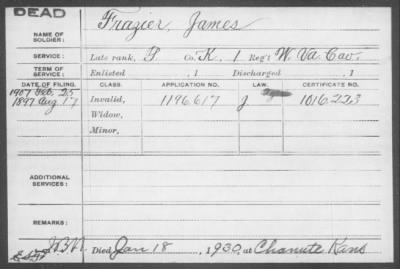 DEAD
NAME OF SOLDIER: Frazier, James
SERVICE: Late rank, P. Co. K, 1 Reg't W. Va. Cav.
TERM OF SERVICE: Enlisted , 1 Discharged , 1
DATE OF FILING. CLASS. APPLICATION NO. LAW. CERTIFICATE NO.
1907 Feb. 25
1897 Aug 17 Invalid, 1196.617 J 1016.223
Widow,
Minor,
ADDITIONAL SERVICES:
REMARKS:
Died Jan 18, 1930, at Chanute Kans